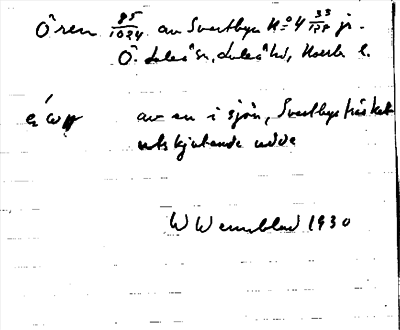 Ören 85/1024 av Svartbyn No 4 33/128 jr.
Ö. Luleå sn, Luleå hd, Norrb. l.
av en i sjön, Svartbyträsket
utskjutande udde
W Wennblad 1930